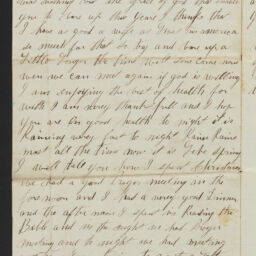 and anything but the grace of God that
you to bare up this years I things that
I have as good a wife as True in america
so much for that so big and bare up a
Little longer the time will soon come now
wen we can meet again if god is willing
I am enjoying the best of health for
with I am very thank full and I hope
you are in good health to night it is
Raining away fast to night Rain Rain
most all the time now it is Gods
I will tell you how I spent Christmas
we had a good Prayer meeting in the
fore noon and I had a very good Dinner
and the after noon I spent in Reading the
Bible and in the night we had Prayer
meeting and to night we had meeting